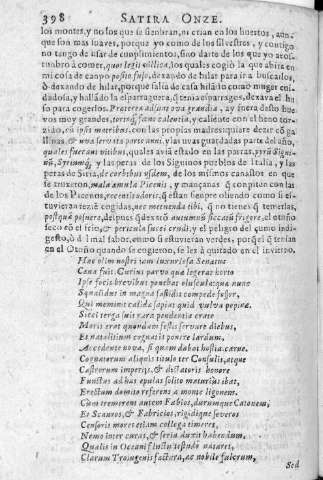 398 SATIRA ONZE.
los montes, y no los que se siembran, ni crian en los huertos, aun-
que son mas suaves, porque yo como de los silvestres, y contigo
no tengo de usar de cumplimientos, sino darte de los que yo acos-
tumbro à comer, quos legit villica, los quales cogiò la que abita en
mi casa de campo posito fuso, dexando de hilar para ir a buscarlos,
ò dexando de hilar, porque salia de casa hilãdo como muger cui-
dadosa, y hallãdo la esparraguera, q̃ tenia esparragos, dexava el hu
so para cogerlos. Præterea adsunt ova grandia, ay fuera desto hue-
vos muy grandes, torto q́, fœno calentia, y caliente con el heno tor-
zido, cũ ipsis matribus, con las propias madres: quiere dezir cõ ga
llinas. & uvæ servatæ parte anni, y las uvas guardadas parte del año,
quales fuerant vitibus, quales aviã estado en las parras, pyrũ Signi-
nũ, Syriumq́, y las peras de los Siguinos pueblos de Italia, y las
peras de Siria, de corbibus ijsdem, de los mismos canastos en que
se truxeron, mala æmula Picenis, y mançanas q̃ conpiten con las
de los Picenos, recentis odoris, q̃ estan siempre oliendo como si es-
tuvieran recien cogidas, nec metuenda tibi, q̃ no tienes q̃ temerlas,
postquã posuere, despues q̃ dexarõ autumnũ siccatũ frigore, el otoño
seco cõ el frio, & pericula succi crudi, y el peligro del çumo indi-
gesto, ò ð l mal sabor, como si estuvieran verdes, porque q̃ tenian
en el Otoño quando se cogieron, se les à quitado en el invierno.
Hæc olim nostri iam luxuriosa Senatus
Cœna fuit. Curius parvo quæ legerat horto
Ipse focis brevibus ponebat oluscula: quæ nunc
Squalidus in magna fastidit compede fossor,
Qui meminit calidæ sapiat quid vulva popinæ.
Sicci terga suis rara pendentia crate
Moris erat quondam festis servare diebus,
Et natalitium cognatis ponere lardum,
Accedente nova, si quam dabat hostia carne.
Cognatorum aliquis titulo ter Consulis, atque
Castrorum imperijs, & dictatoris honore
Functus ad has epulas solito maturiùs ibat,
Erectum domito referens a monte ligonem.
Cum tremerent autem Fabios, durumque Catonem,
Et Scauros, & Fabricios, rigidique severos
Censoris mores etiam collega timeret,
Nemo inter curas, & seria duxit habendum,
Qualis in Oceani fluctu testudo nataret,
Clarum Troiugenis factura, ac nobile fulcrum,
Sed